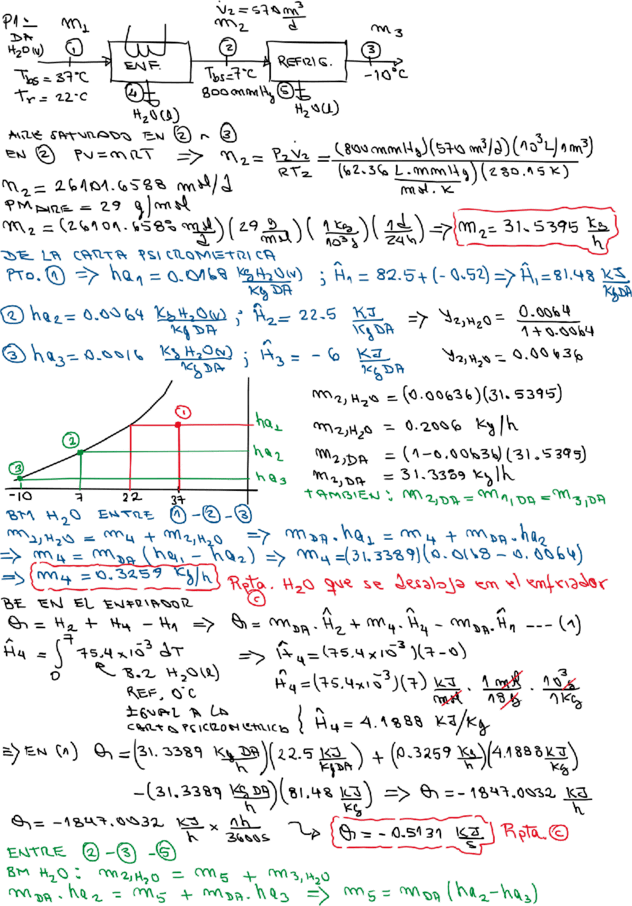 P1:- m₁ V̇₂=570 m³/d m₂ m₃
DA
H₂O(v)
① ENF. ② REFRIG. ③
Tbs=37°C Tbs=7°C -10°C
Tr=22°C ④ 800mmHg ⑤
H₂O(l) H₂O(l)
AIRE SATURADO EN ② ∧ ③
EN ② PV=nRT ⇒ n₂ = P₂V̇₂/RT₂ = (800mmHg)(570 m³/d)(10³L/1m³)/(62.36 L.mmHg/mol.K)(280.15K)
n₂ = 26101.6588 mol/d
PM AIRE = 29 g/mol
m₂ = (26101.6588 mol/d)(29 g/mol)(1kg/10³g)(1d/24h) ⇒ m₂= 31.5395 kg/h
DE LA CARTA PSICROMETRICA
PTO. ① ⇒ ha₁=0.0168 KgH₂O(v)/KgDA ; Ĥ₁ = 82.5+(-0.52) ⇒ Ĥ₁=81.48 KJ/KgDA
② ha₂=0.0064 KgH₂O(v)/KgDA ; Ĥ₂= 22.5 KJ/KgDA ⇒ y₂,H₂O = 0.0064/1+0.0064
③ ha₃=0.0016 KgH₂O(v)/KgDA ; Ĥ₃ = -6 KJ/KgDA y₂,H₂O= 0.00636
① ha₁
② ha₂
③ ha₃
-10 7 22 37
m₂,H₂O = (0.00636)(31.5395)
m₂,H₂O = 0.2006 Kg/h
m₂,DA = (1-0.00636)(31.5395)
m₂,DA = 31.3389 Kg/h
TAMBIEN: m₂,DA=m₁,DA=m₃,DA
BM H₂O ENTRE ①-②-③
m₁,H₂O = m₄ + m₂,H₂O ⇒ mDA.ha₁ = m₄ + mDA.ha₂
⇒ m₄ = mDA(ha₁-ha₂) ⇒ m₄=(31.3389)(0.0168-0.0064)
⇒ m₄ = 0.3259 Kg/h Rpta. ⓒ H₂O que se desaloja en el enfriador
BE EN EL ENFRIADOR
Q = H₂ + H₄ - H₁ ⇒ Q = mDA.Ĥ₂ + m₄.Ĥ₄ - mDA.Ĥ₁ ---(1)
Ĥ₄ = ∫₀⁷ 75.4x10⁻³ dT ⇒ Ĥ₄=(75.4x10⁻³)(7-0)
B.2 H₂O(l)
REF. 0°C
IGUAL A LA
CARTA PSICROMETRICA
Ĥ₄=(75.4x10⁻³)(7) KJ/mol . 1mol/18g . 10³g/1Kg
Ĥ₄ = 4.1888 KJ/Kg
⇒ EN (1) Q = (31.3389 KgDA/h)(22.5 KJ/KgDA) + (0.3259 Kg/h)(4.1888 KJ/Kg)
-(31.3389 KgDA/h)(81.48 KJ/Kg) ⇒ Q = -1847.0032 KJ/h
Q = -1847.0032 KJ/h x 1h/3600s Q = -0.5131 KJ/s Rpta. ⓒ
ENTRE ②-③-⑤
BM H₂O: m₂,H₂O = m₅ + m₃,H₂O
mDA.ha₂ = m₅ + mDA.ha₃ ⇒ m₅ = mDA(ha₂-ha₃)